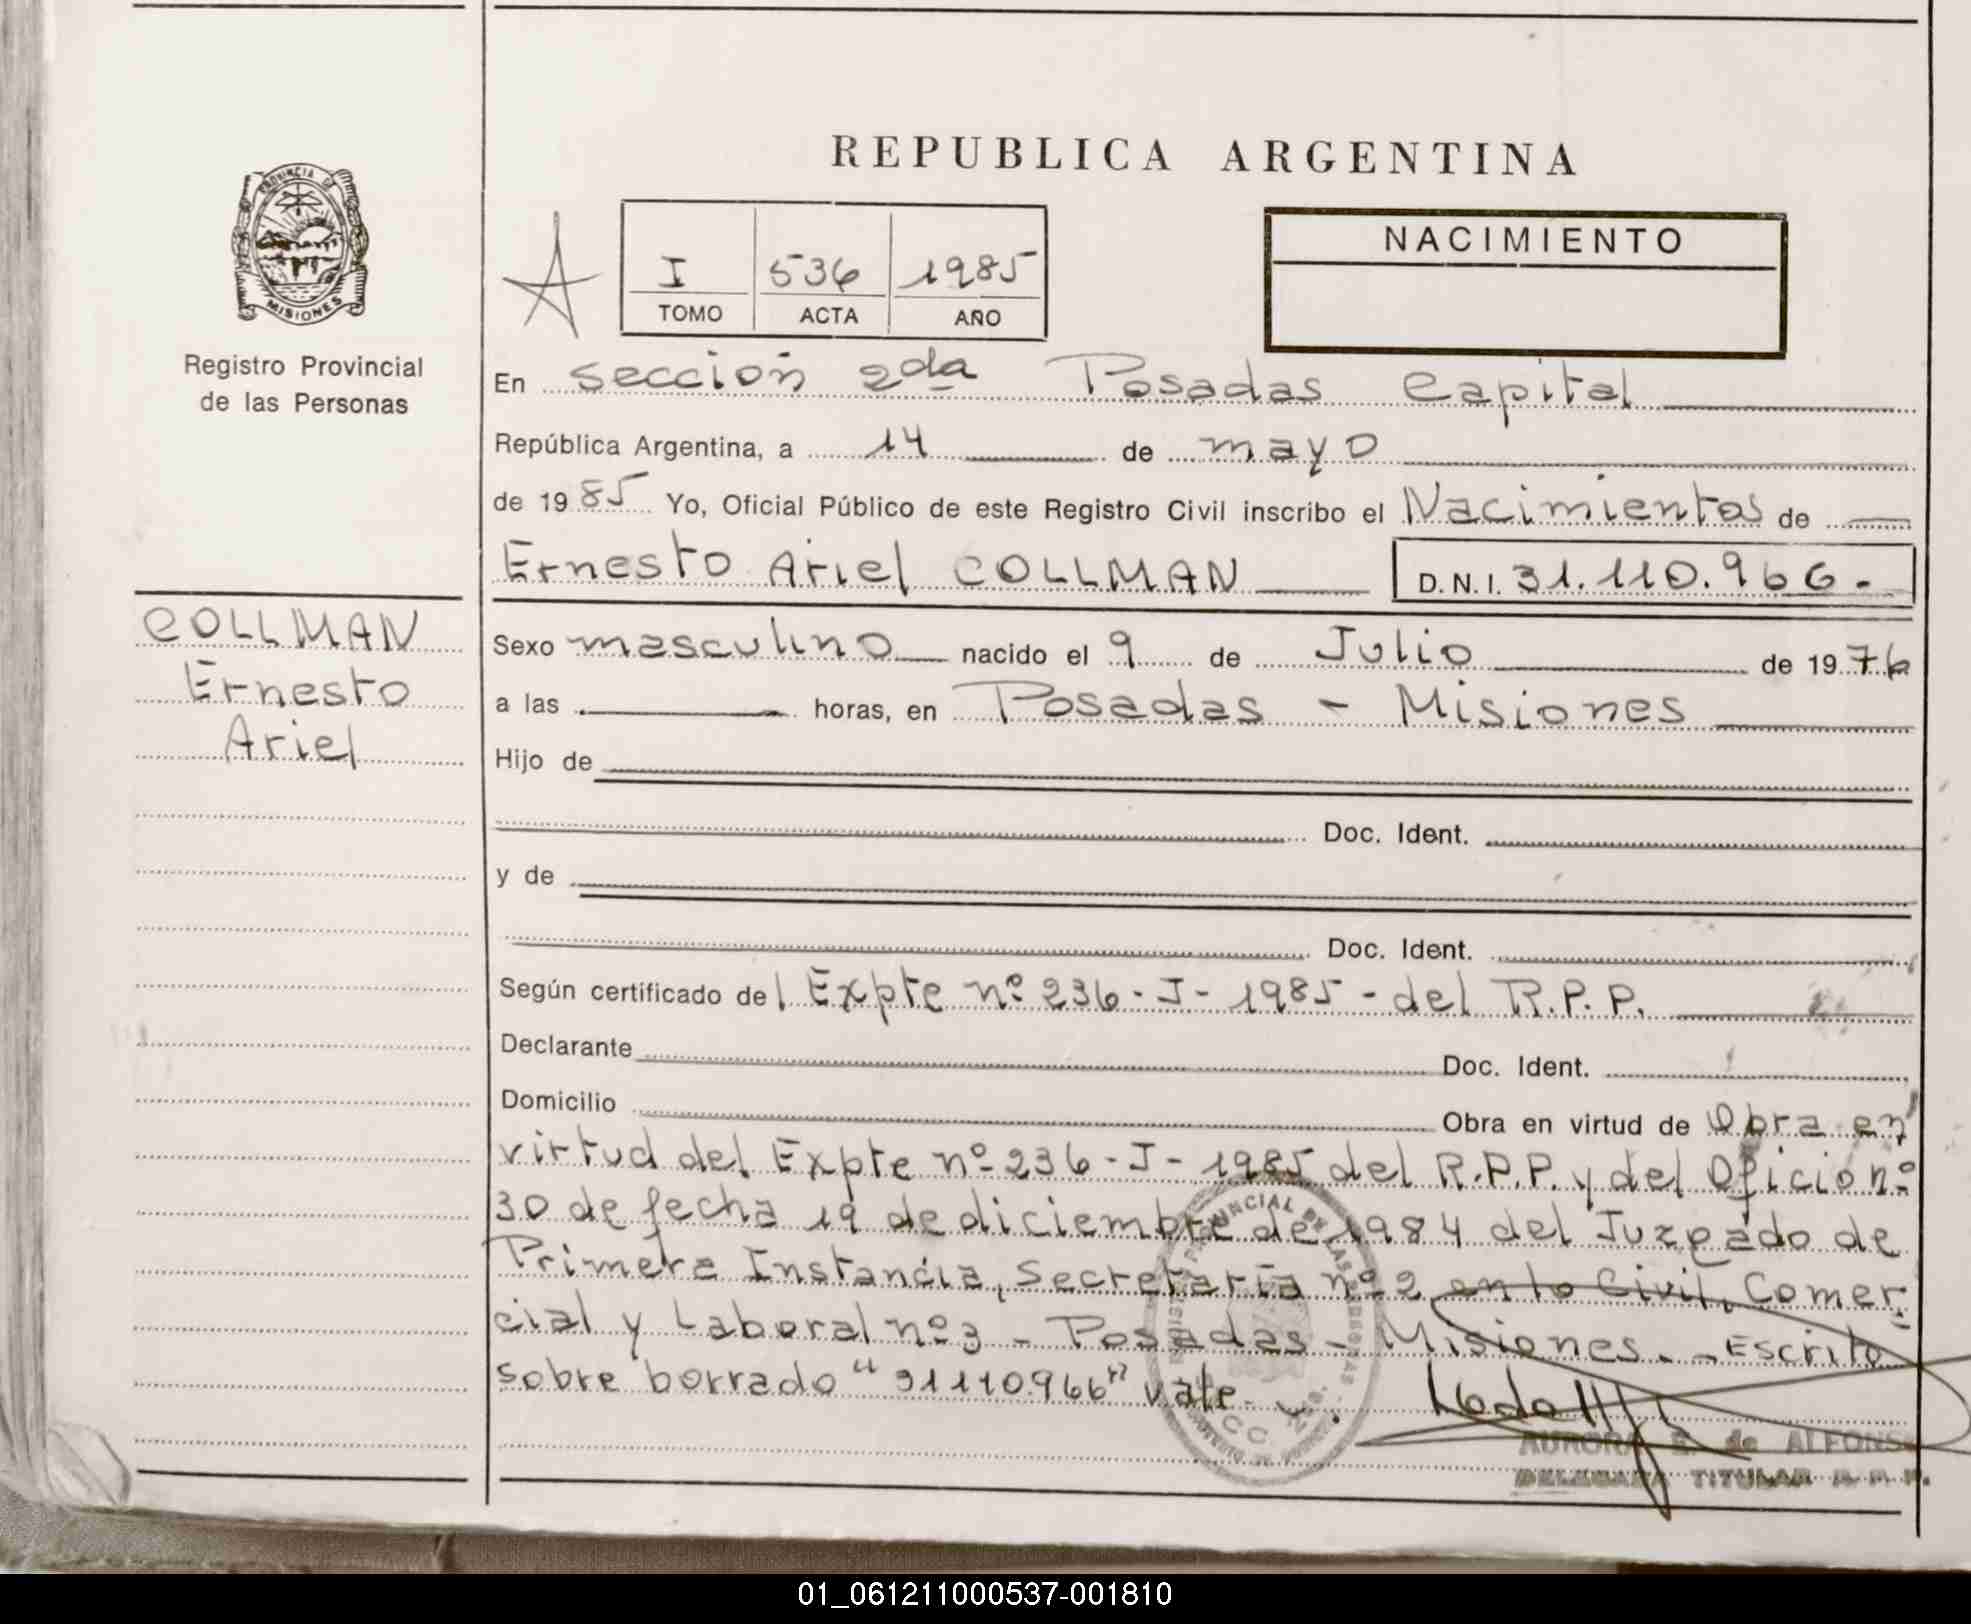 REPUBLICA ARGENTINA
PROVINCIA DE
MISIONES
Registro Provincial
de las Personas
I 536 1985
TOMO ACTA AÑO
NACIMIENTO
En sección 2da Posadas Capital
República Argentina, a 14 de mayo
de 1985 Yo, Oficial Público de este Registro Civil inscribo el Nacimientos de
Ernesto Ariel COLLMAN D.N.I. 31.110.966.-
COLLMAN
Ernesto
Ariel
Sexo masculino nacido el 9 de Julio de 1976
a las horas, en Posadas - Misiones
Hijo de
Doc. Ident.
y de
Doc. Ident.
Según certificado del Expte nº 236-I-1985-del R.P.P.
Declarante Doc. Ident.
Domicilio Obra en virtud de Obra en
virtud del Expte nº 236-I-1985 del R.P.P. y del Oficio nº
30 de fecha 19 de diciembre de 1984 del Juzgado de
Primera Instancia, Secretaría nº 2 en lo Civil, Comer-
cial y Laboral nº 3 - Posadas - Misiones. - Escrito
sobre borrado "31110966" vale.
AURORA de ALFONS
DELEGADA TITULAR
01_061211000537-001810